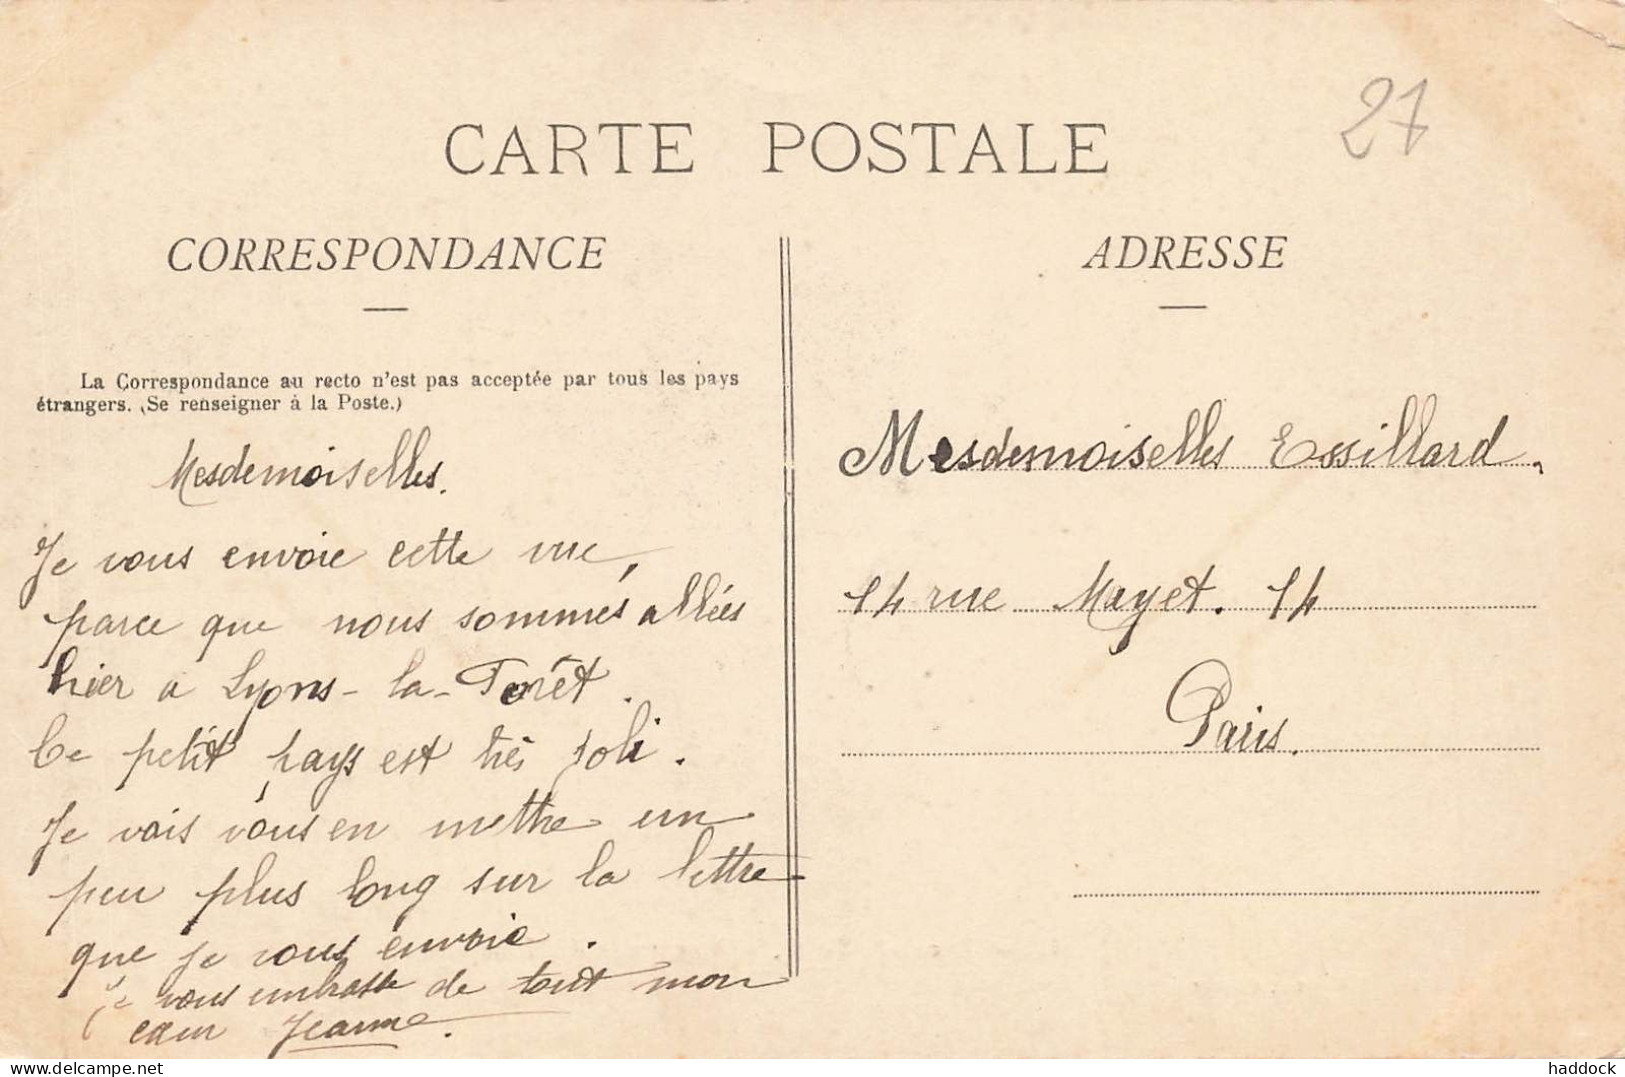 27
CARTE POSTALE
CORRESPONDANCE
La Correspondance au recto n'est pas acceptée par tous les pays
étrangers. (Se renseigner à la Poste.)
Mesdemoiselles.
Je vous envoie cette vue,
parce que nous sommes allées
hier a Lyons-la-Forêt.
Ce petit pays est très joli.
Je vais vous en mettre un
peu plus long sur la lettre
que je vous envoie.
Je vous embrasse de tout mon
cœur Jeanne.
ADRESSE
Mesdemoiselles Essillard,
14 rue Mayet. 14
Paris.
www.delcampe.net
haddock